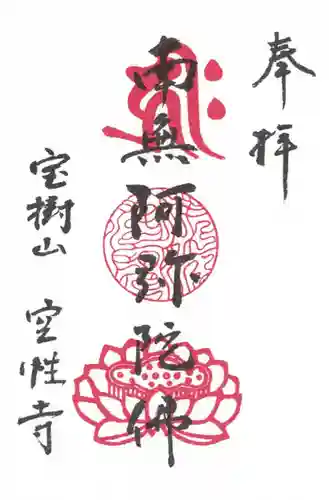 奉拝
南無阿弥陀佛
宝樹山
空性寺